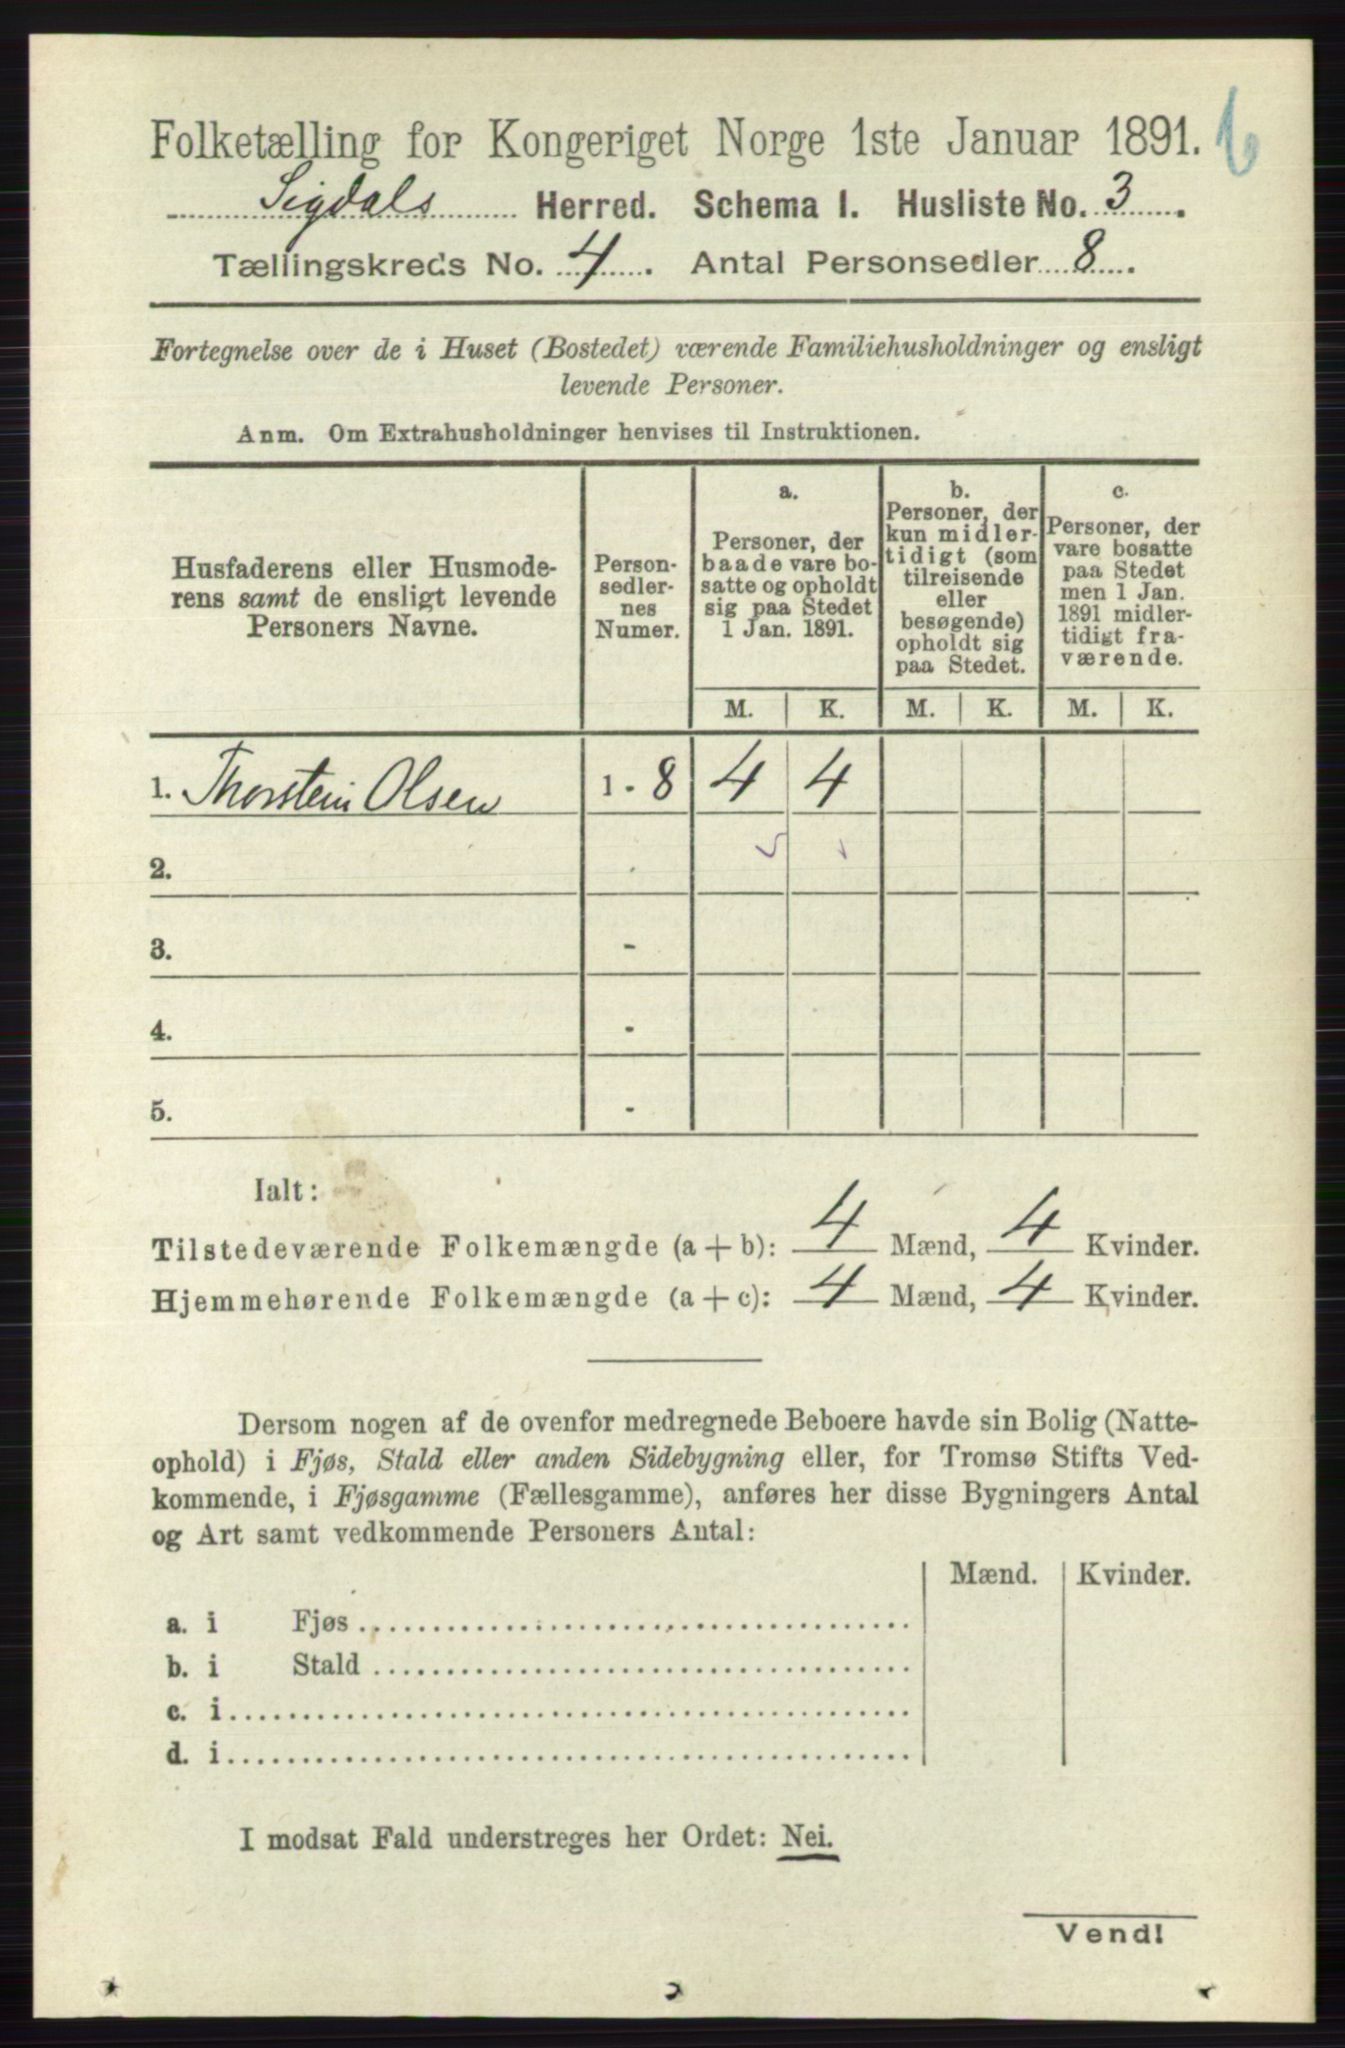 Folketælling for Kongeriget Norge 1ste Januar 1891.
6
Sigdals Herred. Schema I. Husliste No. 3.
Tællingskreds No. 4. Antal Personsedler 8.
Fortegnelse over de i Huset (Bostedet) værende Familiehusholdninger og ensligt
levende Personer.
Anm. Om Extrahusholdninger henvises til Instruktionen.
Husfaderens eller Husmode-
rens samt de ensligt levende
Personers Navne.
Person-
sedler-
nes
Numer.
a.
Personer, der
baade vare bo-
satte og opholdt
sig paa Stedet
1 Jan. 1891.
b.
Personer, der
kun midler-
tidigt (som
tilreisende
eller
besøgende)
opholdt sig
paa Stedet.
c.
Personer, der
vare bosatte
paa Stedet
men 1 Jan.
1891 midler-
tidigt fra-
værende.
M. K. M. K. M. K.
1. Thorstein Olsen 1 - 8 4 4
2.
3. -
4. -
5. -
Ialt:
Tilstedeværende Folkemængde (a + b): 4 Mænd, 4 Kvinder.
Hjemmehørende Folkemængde (a + c): 4 Mænd, 4 Kvinder.
Dersom nogen af de ovenfor medregnede Beboere havde sin Bolig (Natte-
ophold) i Fjøs, Stald eller anden Sidebygning eller, for Tromsø Stifts Ved-
kommende, i Fjøsgamme (Fællesgamme), anføres her disse Bygningers Antal
og Art samt vedkommende Personers Antal:
Mænd. Kvinder.
a. i Fjøs
b. i Stald
c. i
d. i
I modsat Fald understreges her Ordet: Nei.
Vend!